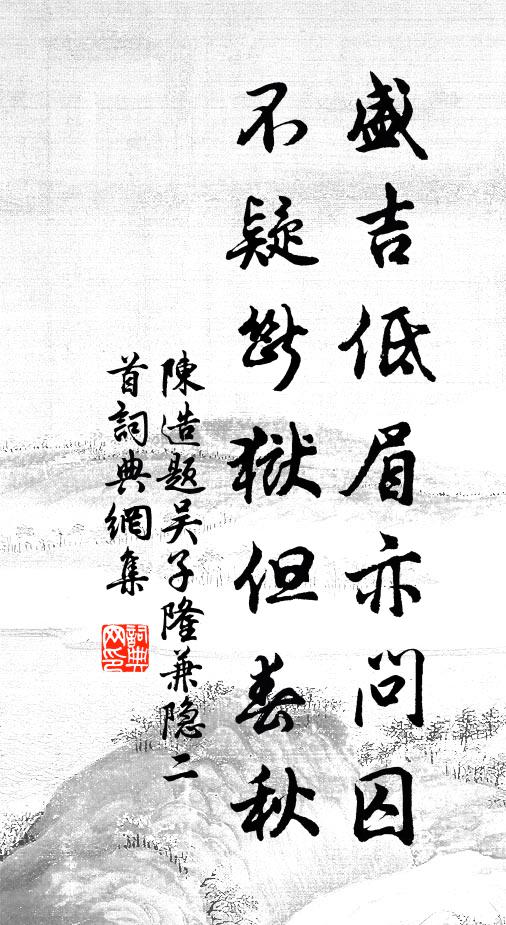 盛吉低眉亦問囚
不疑斷獄但春秋
陳造題吴子隆兼隐二
首詞典網集
詞典网印